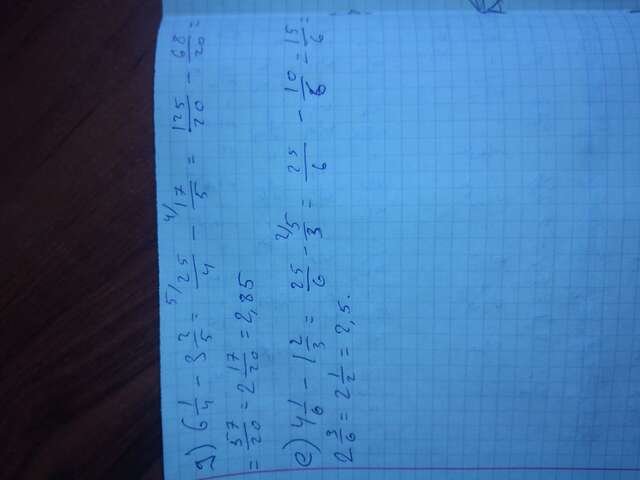 д) 6 1/4 - 3 2/5 = 5/ 25/4 - 4/ 17/5 = 125/20 - 68/20 =
= 57/20 = 2 17/20 = 2,85
е) 4 1/6 - 1 2/3 = 25/6 - 2/ 5/3 = 25/6 - 10/6 = 15/6 =
2 3/6 = 2 1/2 = 2,5.